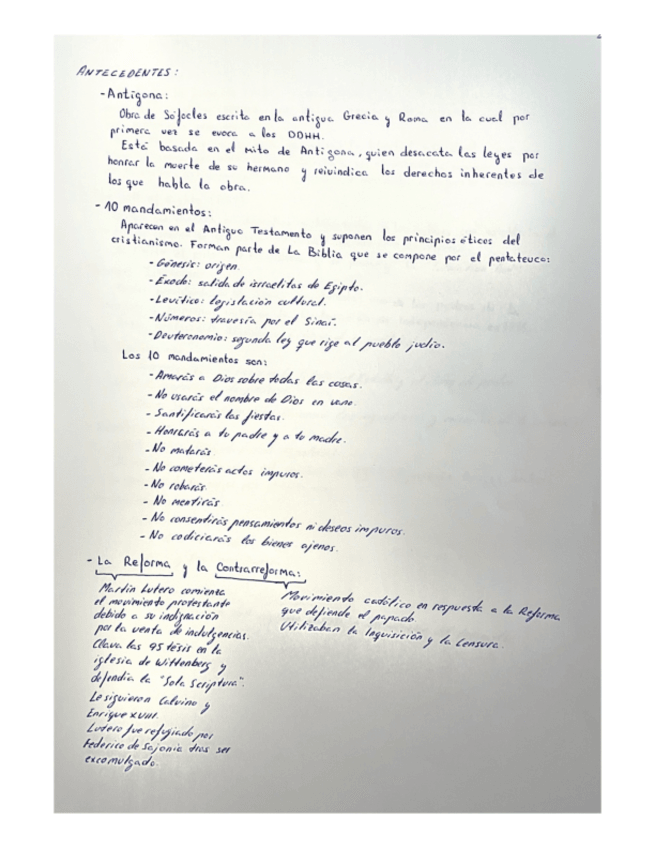 ANTECEDENTES:
- Antígona:
Obra de Sófocles escrita en la antigua Grecia y Roma en la cual por
primera vez se evoca a los DDHH.
Está basada en el mito de Antígona, quien desacata las leyes por
honrar la muerte de su hermano y reivindica los derechos inherentes de
los que habla la obra.
- 10 mandamientos:
Aparecen en el Antiguo Testamento y suponen los principios éticos del
cristianismo. Forman parte de La Biblia que se compone por el pentateuco:
- Génesis: origen.
- Éxodo: salida de israelitas de Egipto.
- Levítico: legislación cultural.
- Números: travesía por el Sinaí.
- Deuteronomio: segunda ley que rige al pueblo judío.
Los 10 mandamientos son:
- Amarás a Dios sobre todas las cosas.
- No usarás el nombre de Dios en vano.
- Santificarás las fiestas.
- Honrarás a tu padre y a tu madre.
- No matarás
- No cometerás actos impuros.
- No robarás
- No mentirás
- No consentirás pensamientos ni deseos impuros.
- No codiciarás los bienes ajenos.
- La Reforma y la Contrarreforma:
Martín Lutero comienza
el movimiento protestante
debido a su indignación
por la venta de indulgencias.
Clava las 95 tesis en la
iglesia de Wittenberg y
defendía la "Sola Scriptura".
Le siguieron Calvino y
Enrique XVIII.
Lutero fue refugiado por
Federico de Sajonia tras ser
excomulgado.
Movimiento católico en respuesta a la Reforma
que defiende el papado
Utilizaban la Inquisición y la Censura.